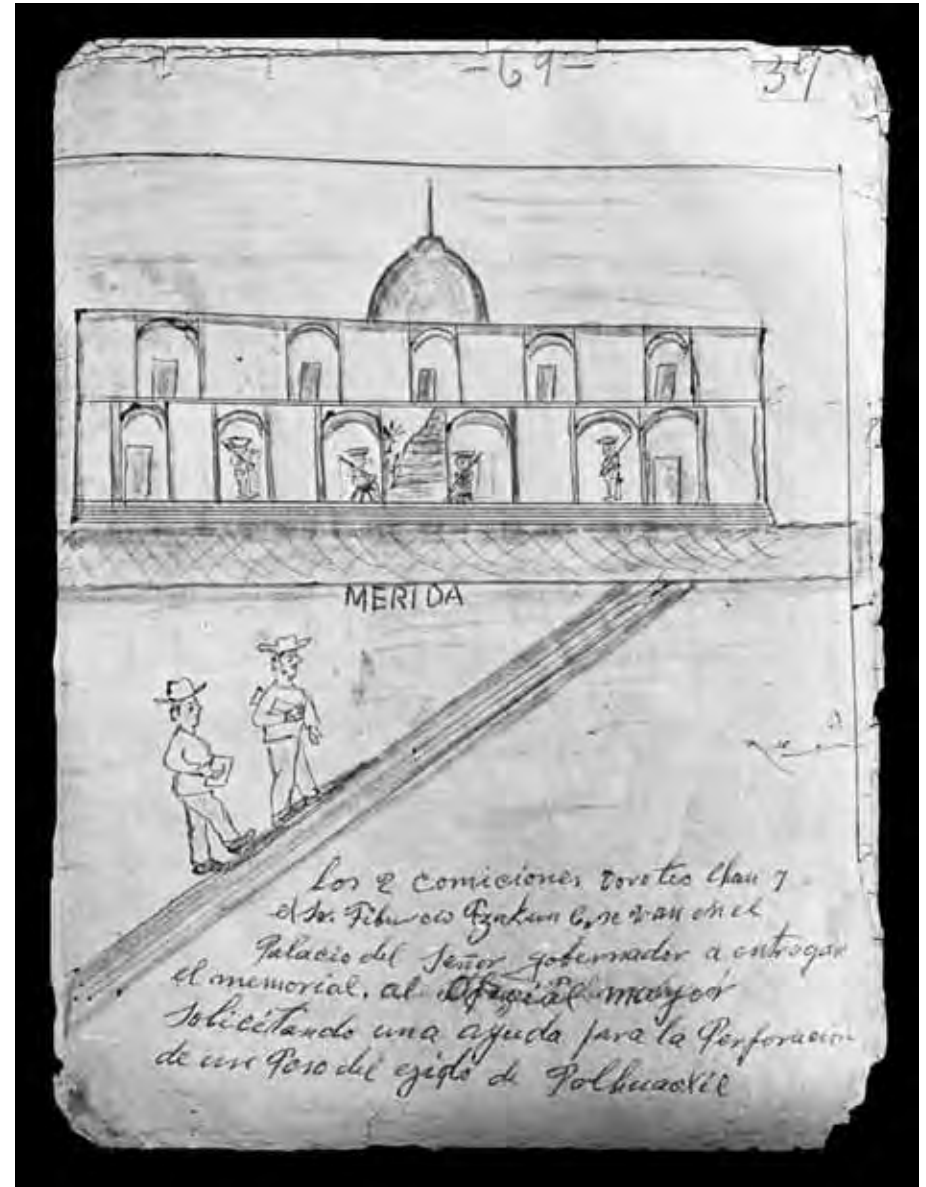 -69-
37
MERIDA
Los 2 comiciones Doroteo Chan y
el Sr. Tiburcio Tzakum C, se van en el
Palacio del Señor gobernador a entregar
el memorial, al Oficial mayór
solicitando una ayuda para la Perforacion
de un Poso del ejido de